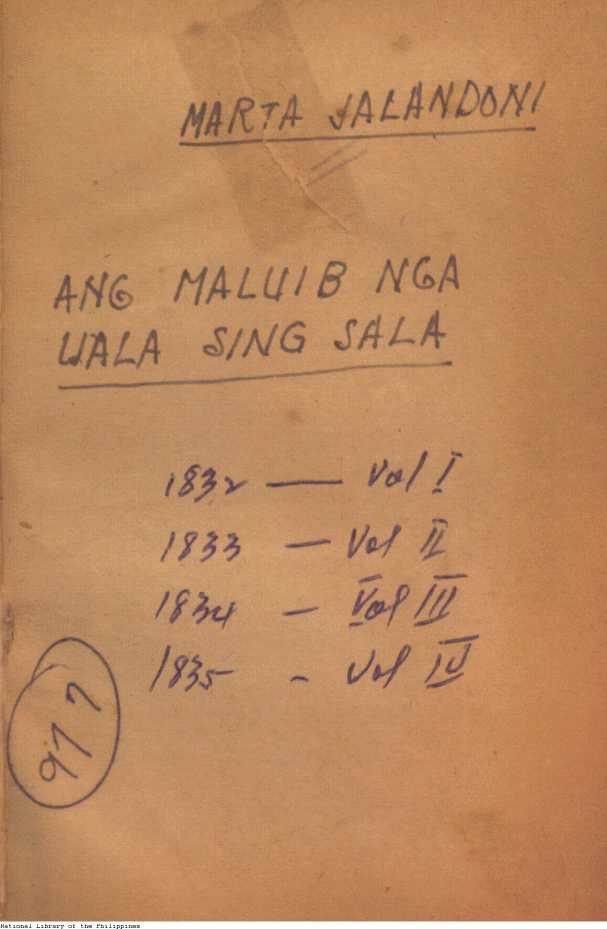 MARTA JALANDONI
ANG MALUIB NGA
WALA SING SALA
1832 — Vol I
1833 — Vol II
1834 — Vol III
1835 - Vol IV
National Library of the Philippines